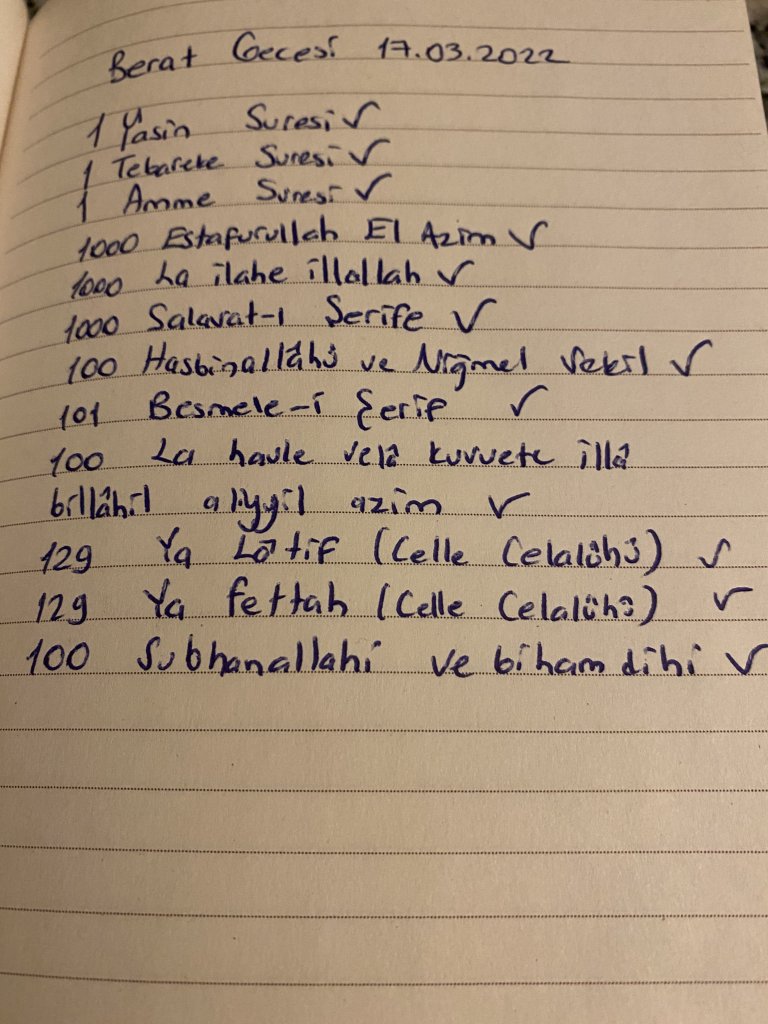 Berat Gecesi 17.03.2022
1 Yasin Suresi ✓
1 Tebareke Suresi ✓
1 Amme Suresi ✓
1000 Estafurullah El Azim ✓
1000 La ilahe illallah ✓
1000 Salavat-ı Şerife ✓
100 Hasbinallâhû ve Niğmel Vekil ✓
101 Besmele-i Şerif ✓
100 La havle velâ kuvvete illâ
billâhil aliyyil azim ✓
129 Ya Lâtif (Celle Celalühû) ✓
129 Ya Fettah (Celle Celalühû) ✓
100 Subhanallahi ve bihamdihi ✓